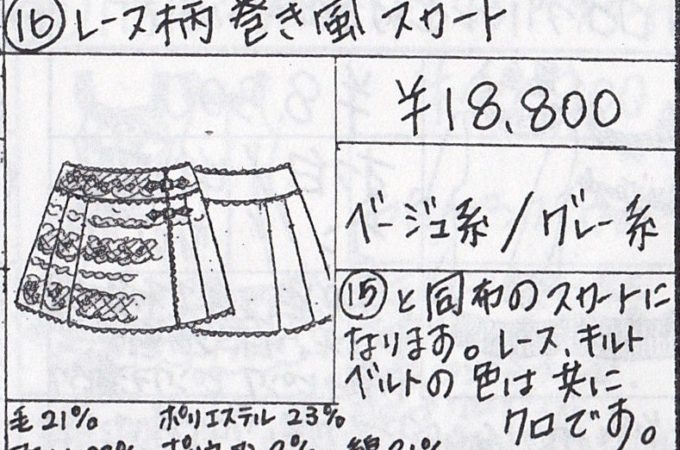 ⑯レース柄巻き風スカート
¥18,800
ベージュ系/グレー系
⑮と同布のスカートに
なります。レース、キルト
ベルトの色は共に
クロです。
毛21% ポリエステル23%